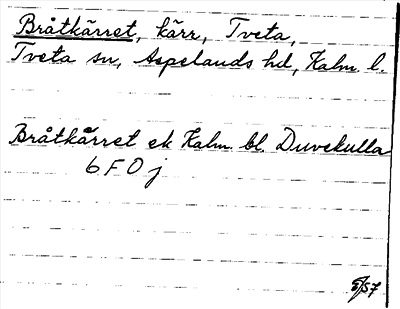 Bråtkärret, kärr, Tveta,
Tveta sn, Aspelands hd, Kalm. l.
Bråtkärret ek Kalm. bl. Duvekulla
6 F O j
5/57